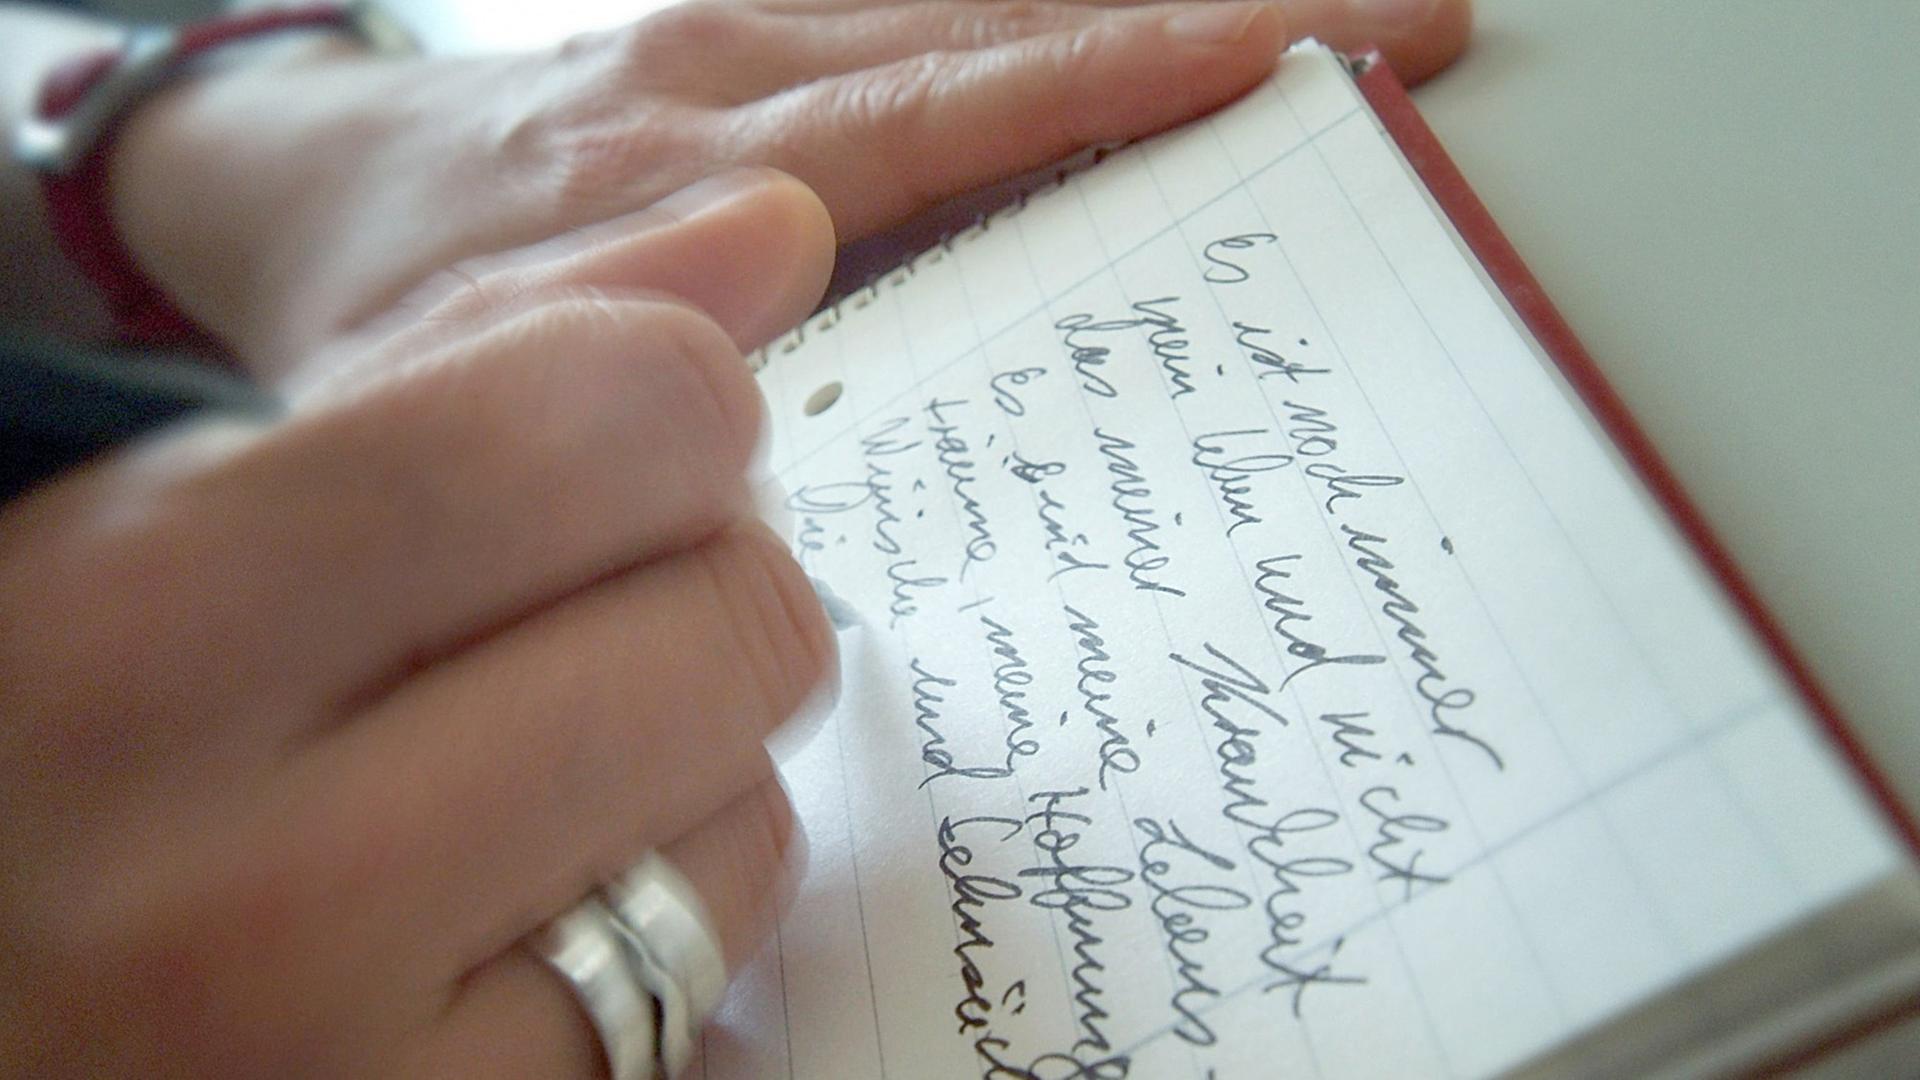 Es ist noch immer
mein Leben und nicht
das meiner Krankheit
Es sind meine Lebens-
träume, meine Hoffnung
Wünsche und Sehnsüch
Die